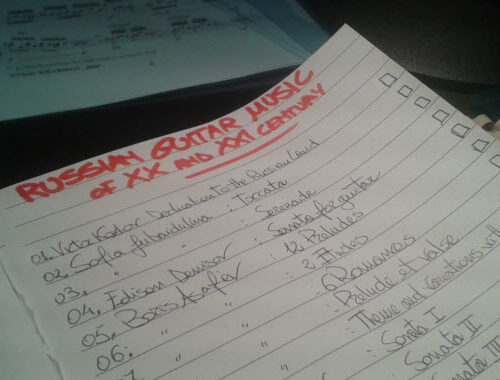 RUSSIAN GUITAR MUSIC
OF XX AND XXI CENTURY
01. Victor Kozlov: Dedication to the Russian Land
02. Sofia Gubaidulina : Toccata
03. " " : Serenade
04. Edison Denisov : Sonata for guitar
05. Boris Asafiev : 12 Preludes
06. " " : 2 Etudes
" " : 6 Romances
: Prelude et Valse
: Theme and variations
: Sonata I
: Sonata II
Sonata III